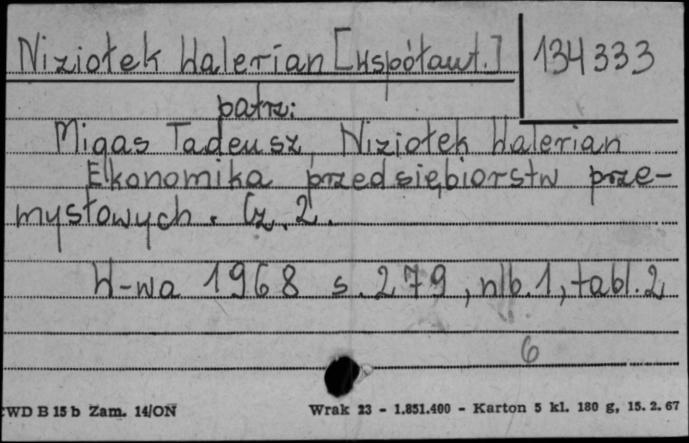 Niziołek Walerian [współaut.] 134333
patrz:
Migas Tadeusz, Niziołek Walerian
Ekonomika przedsiębiorstw prze-
mysłowych. Cz. 2.
W-wa 1968 s. 279, nlb. 1, tabl. 2
6
CWD B 15 b Zam. 14/ON Wrak 23 - 1.851.400 - Karton 5 kl. 180 g, 15. 2. 67